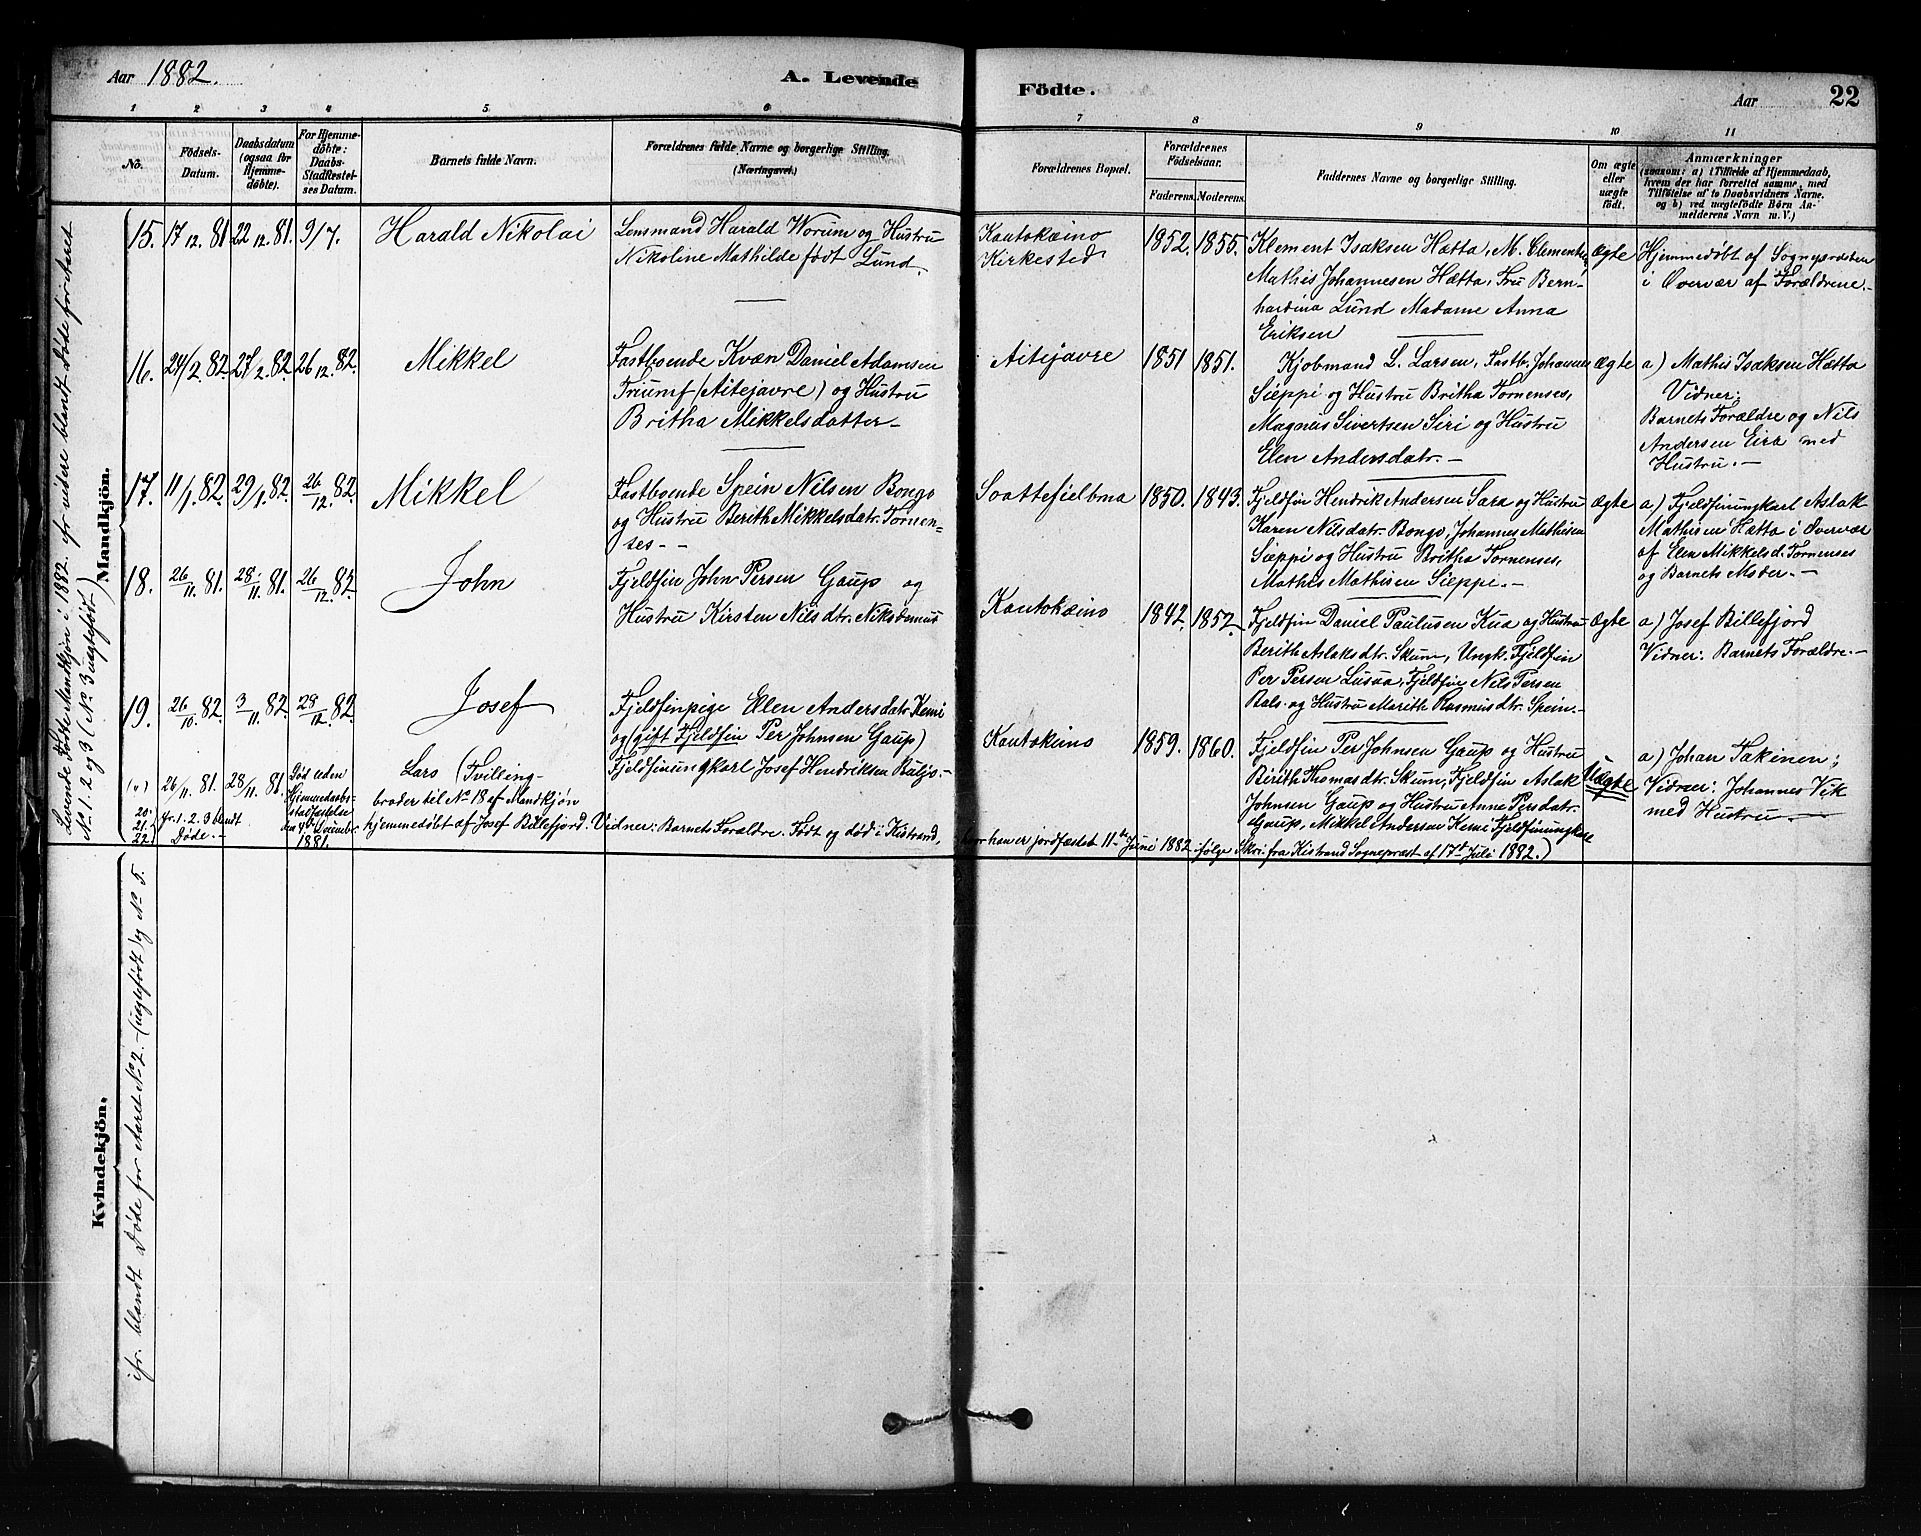 Aar 1882.
A. Levende
Födte.
Aar
22
1
2
3
4
5
6
7
8
9
10
11
No.
Födsels-
Datum.
Daabsdatum
(ogsaa for
Hjemme-
döbte).
For Hjemme-
döbte:
Daabs-
Stadfæstel-
ses Datum.
Barnets fulde Navn.
Forældrenes fulde Navne og borgerlige Stilling.
(Næringsvei.)
Forældrenes Bopæl.
Forældrenes
Födselsaar.
Faderens.
Moderens.
Faddernes Navne og borgerlige Stilling.
Om ægte
eller
uægte
födt.
Anmærkninger
(saasom: a) i Tilfælde af Hjemmedaab,
hvem der har forrettet samme, med
Tilföielse af to Daabsvidners Navne,
og b) ved uægtefödte Börn An-
melderens Navn m. V.)
Levende Fødte Mandkjøn i 1882. jfr videre blandt Døde for Aaret
No. 1. 2 og 3 (No. 3 uægtefødt)
Mandkjön.
15. 17/12. 81 22/12. 81. 9/7.
Harald Nikolai
Lensmand Harald Worum og Hustru
Nikoline Mathilde født Lund.
Kautokæino
Kirkested
1852. 1855.
Klement Isaksen Hætta, M. Clementsen,
Mathis Johannesen Hætta, Fru Bern-
hardina Lund Madame Anna
Eriksen
ægte
Hjemmedøbt af Sognepræsten
i Overvær af Forældrene.-
16. 24/2. 82. 27/2. 82. 26/12. 82.
Mikkel
Fastboende Kvæn Daniel Adamsen
Triumf (Aitejavre) og Hustru
Britha Mikkelsdatter-
Aitejavre
1851 1851.
Kjøbmand L. Larsen, Fastb. Johannes
Sieppi og Hustru Britha Tornenses,
Magnus Sivertsen Siri og Hustru
Elen Andersdatr.-
ægte
a) Mathis Isaksen Hætta
Vidner:
Barnets Forældre og Nils
Andersen Eira med
Hustru.-
17. 11/1. 82. 29/1. 82. 26/12. 82.
Mikkel
Fastboende Spein Nilsen Bongo
og Hustru Berith Mikkelsdatr. Tornen-
ses--
Soattefjelbma
1850. 1843.
Fjeldfin Hendrik Andersen Sara og Hustru
Karen Nilsdatr. Bongo, Johannes Mathisen
Sieppi og Hustru Britha Tornenses,
Mathis Mathisen Sieppi.-
ægte
a) Fjeldfinungkarl Aslak
Mathisen Hætta i Overvær
af Elen Mikkelsd. Tornenses
og Barnets Moder.-
18. 26/11. 81. 28/11. 81. 26/12. 82.
John
Fjeldfin John Persen Gaup og
Hustru Kirsten Nilsdtr. Nikodemus
Kautokæino
1842. 1852.
Fjeldfin Daniel Paulusen Kua og Hustru
Berith Aslaksdtr. Skum, Ungk. Fjeldfin
Per Persen Lusua, Fjeldfin Nils Persen
Bals. og Hustru Marith Rasmusdtr. Spein.-
ægte
a) Josef Billefjord
Vidner: Barnets Forældre.-
19. 26/10. 82. 3/11. 82. 28/12. 82.
Josef
Fjeldfinpige Elen Andersdatr. Kemi
og (gift Fjeldfin Per Johnsen Gaup)
Fjeldfinungkarl Josef Hendriksen Buljo.-
Kautokeino
1859. 1860.
Fjeldfin Per Johnsen Gaup og Hustru
Berith Thomasdtr. Skum, Fjeldfin Aslak
Johnsen Gaup og Hustru Anne Persdatr.
Gaup, Mikkel Andersen Kemi Fjeldfinungkarl
Uægte
a) Johan Takinen;
Vidner: Johannes Vik
med Hustru.-
(") 26/11. 81. 28/11. 81. Død uden
Hjemmedaabs-
stadfæstelse
den 4de Decembr.
1881.
Lars (Tvilling-
broder til No 18 af Mandkjøn
hjemmedøbt af Josef Billefjord. Vidner: Barnets Forældre. Født og død i Kistrand,
hvor han er jordfæstet 11te Juni 1882 ifølge Skr. fra Kistrand Sognepræst af 17d. Juli 1882.)
20.
21.
22.
jfr. 1. 2. 3 blandt
Døde.-
Kvindekjön.
jfr. blandt Døde for Aaret No. 2. (uægtefødt) og No 5.